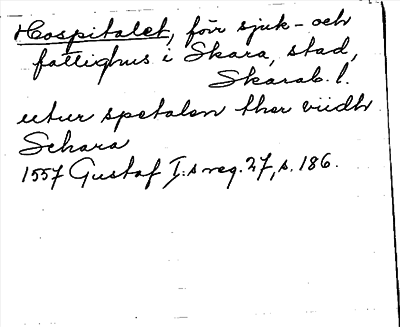 Hospitalet, förr sjuk- och
fattighus i Skara, stad,
Skarab. l.
utur spetalen ther viidh
Schara
1557 Gustaf I:s reg. 27, s. 186.